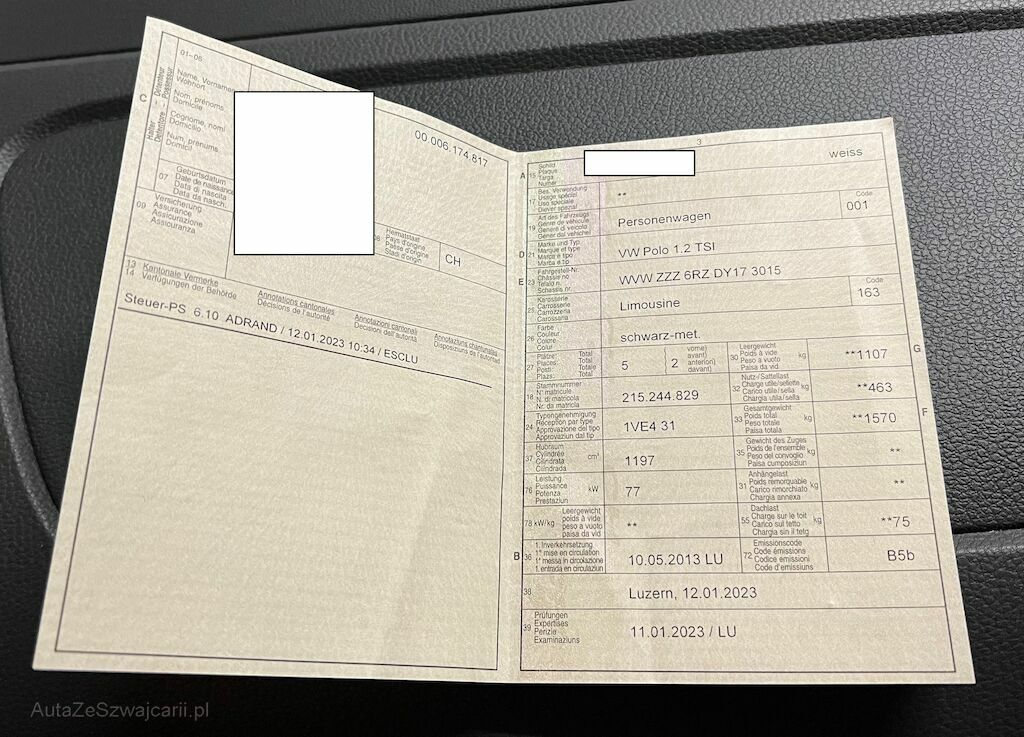 01–06
C
Halter
Détenteur
Detentore
Possessur
Name, Vornamen
Wohnort
Nom, prénoms
Domicile
Cognome, nomi
Domicilio
Num, prenums
Domicil
00.006.174.817
07
Geburtsdatum
Date de naissance
Data di nascita
Data da nasch.
09
Versicherung
Assurance
Assicurazione
Assicuranza
08
Heimatstaat
Pays d'origine
Paese d'origine
Stadi d'origin
CH
13
14
Kantonale Vermerke
Verfügungen der Behörde
Annotations cantonales
Décisions de l'autorité
Annotazioni cantonali
Decisioni dell'autorità
Annotaziuns chantunalas
Disposiziuns da l'autoritad
Steuer-PS 6.10 ADRAND / 12.01.2023 10:34 / ESCLU
3
A 15
Schild
Plaque
Targa
Numer
weiss
17
Bes. Verwendung
Usage spécial
Uso speciale
Diever spezial
**
19
Art des Fahrzeugs
Genre de véhicule
Genere di veicolo
Gener dal vehichel
Personenwagen
Code
001
D 21
Marke und Typ
Marque et type
Marca e tipo
Marca e tip
VW Polo 1.2 TSI
E 23
Fahrgestell-Nr.
Châssis no
Telaio n.
Schassis nr.
WVW ZZZ 6RZ DY17 3015
25
Karosserie
Carrosserie
Carrozzeria
Carossaria
Limousine
Code
163
26
Farbe
Couleur
Colore
Colur
schwarz-met.
27
Plätze: Total
Places: Total
Posti: Totale
Plazs: Total
5
2
vorne)
avant)
anteriori)
davant)
30
Leergewicht
Poids à vide
Peso a vuoto
Paisa da vid
kg
**1107
G
18
Stammnummer
N° matricule
N. di matricola
Nr. da matricla
215.244.829
32
Nutz-/Sattellast
Charge utile/sellette
Carico utile/sella
Chargia utila/sella
kg
**463
24
Typengenehmigung
Réception par type
Approvazione del tipo
Approvaziun dal tip
1VE4 31
33
Gesamtgewicht
Poids total
Peso totale
Paisa totala
kg
**1570
F
37
Hubraum
Cylindrée
Cilindrata
Cilindrada
cm³
1197
35
Gewicht des Zuges
Poids de l'ensemble
Peso del convoglio
Paisa cumposiziun
kg
**
76
Leistung
Puissance
Potenza
Prestaziun
kW
77
31
Anhängelast
Poids remorquable
Carico rimorchiato
Chargia annexa
kg
**
78 kW/kg
Leergewicht
poids à vide
peso a vuoto
paisa da vid
**
55
Dachlast
Charge sur le toit
Carico sul tetto
Chargia sin il tetg
kg
**75
B 36
1. Inverkehrsetzung
1re mise en circulation
1a messa in circolazione
1. entrada en circulaziun
10.05.2013 LU
72
Emissionscode
Code émissions
Codice emissioni
Code d'emissiuns
B5b
38
Luzern, 12.01.2023
39
Prüfungen
Expertises
Perizie
Examinaziuns
11.01.2023 / LU
AutaZeSzwajcarii.pl